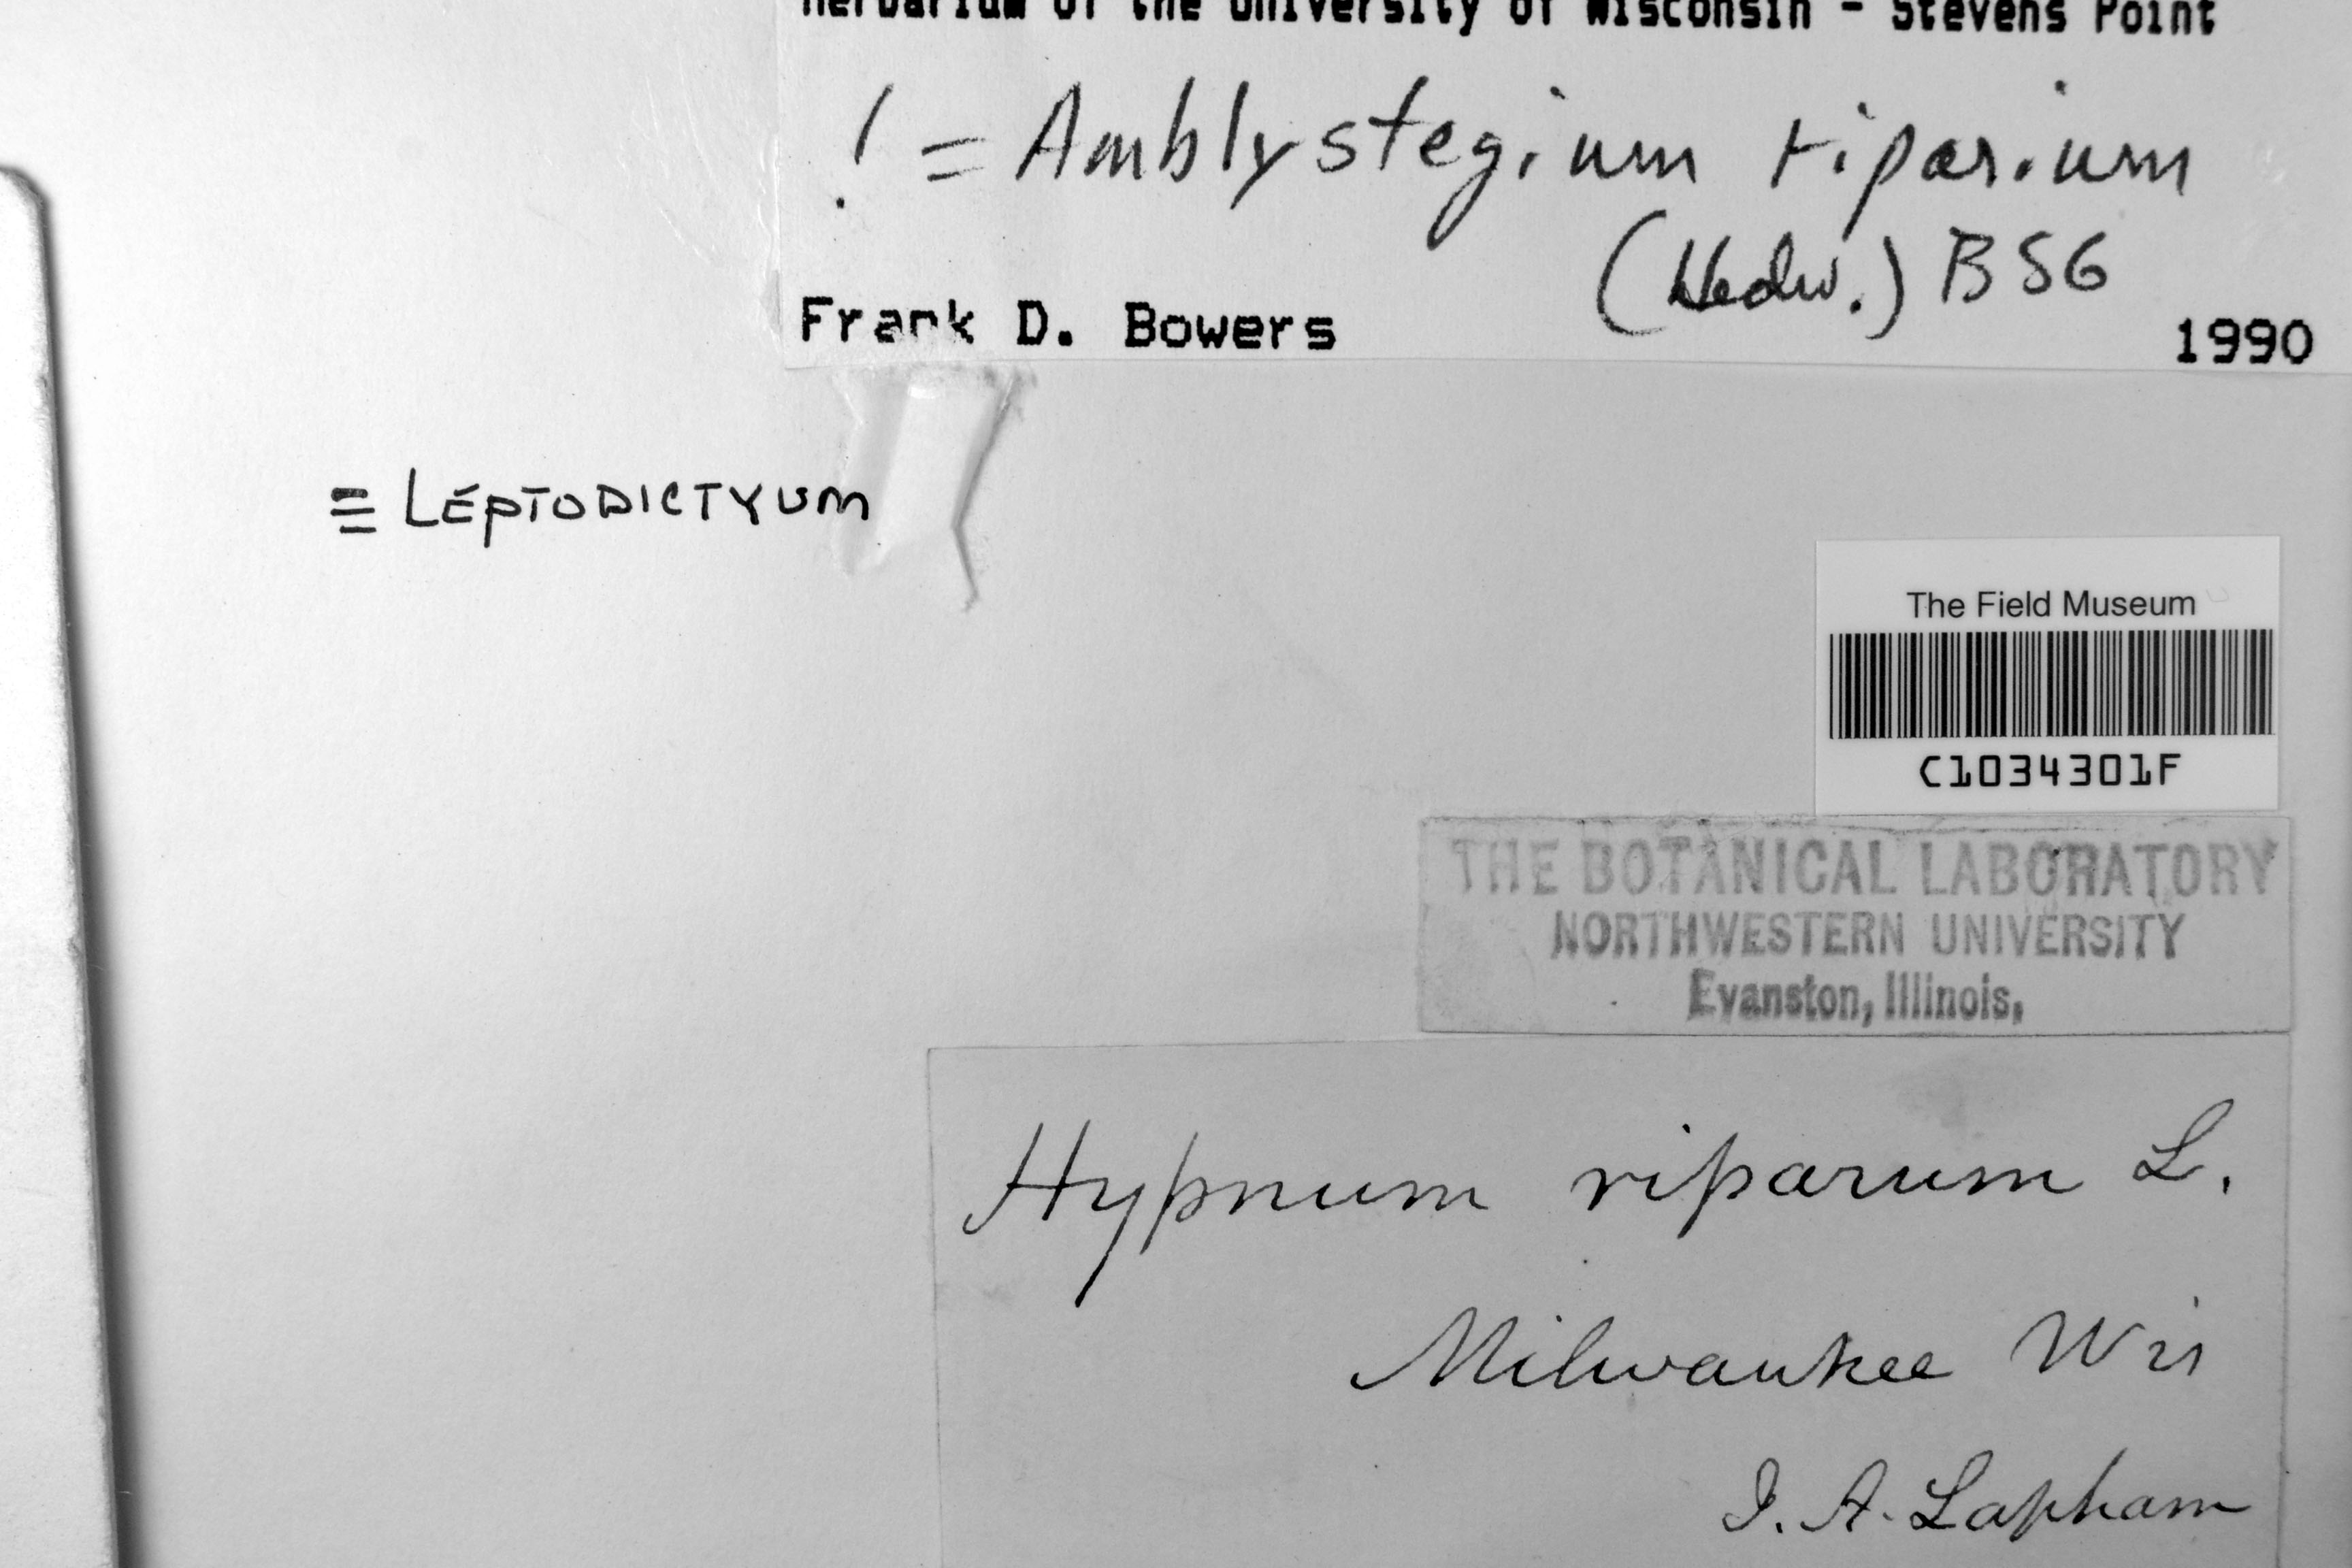 Herbarium of the University of Wisconsin - Stevens Point
! = Amblystegium riparium
(Hedw.) BSG
Frank D. Bowers
1990
≡ LEPTODICTYUM
The Field Museum
C1034301F
THE BOTANICAL LABORATORY
NORTHWESTERN UNIVERSITY
Evanston, Illinois,
Hypnum riparum L.
Milwaukee Wis
I. A. Lapham